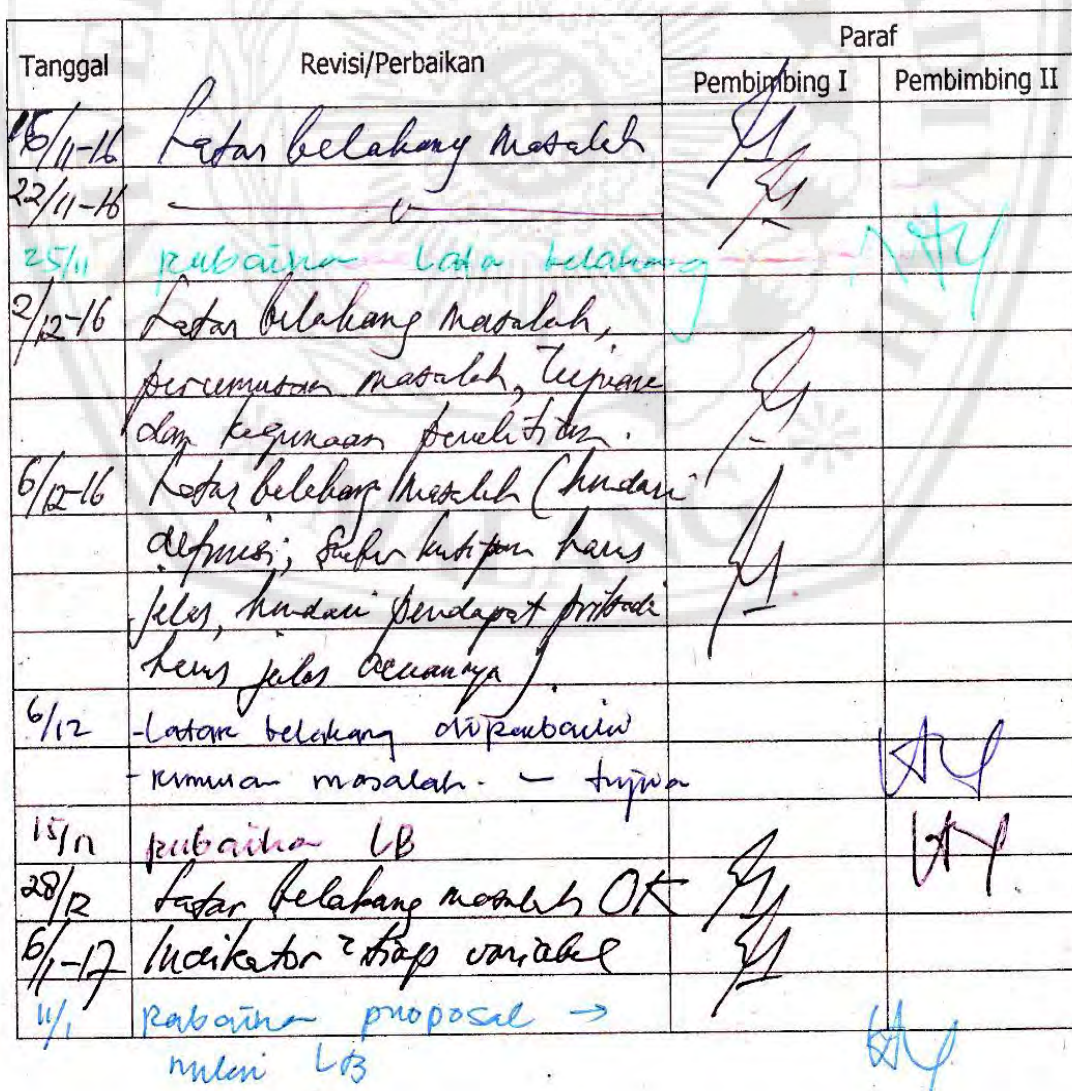 Tanggal Revisi/Perbaikan Paraf
Pembimbing I Pembimbing II
15/11-16 Latar belakang masalah
22/11-16
25/11 perbaikan Latar belakang
2/12-16 Latar belakang masalah,
perumusan masalah, Tujuan
dan kegunaan penelitian.
6/12-16 Latar belakang masalah (hindari
definisi; kutipan harus
jelas, hindari pendapat pribadi
harus jelas acuannya).
6/12 -Latar belakang diperbaiki
-rumusan masalah. - tujuan
15/12 perbaikan LB
28/12 Latar belakang masalah OK
6/1-17 Indikator 2 tiap variabel
11/1 Perbaikan proposal →
mulai LB
MALANG